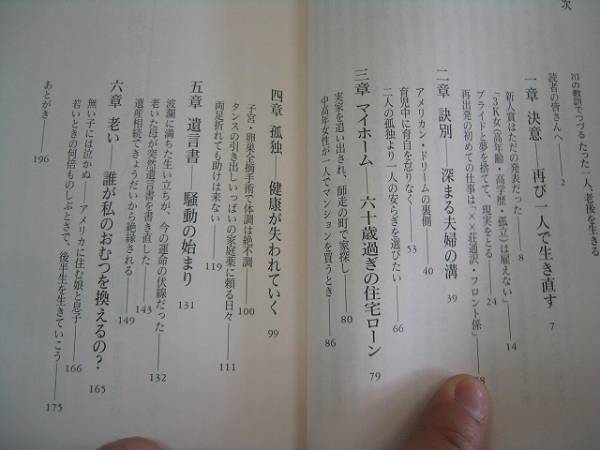 次
31の教訓でつづる たった一人、老後を生きる
読者の皆さんへ──2
一章 決意 再び一人で生き直す 7
新人賞はただの発表だった──8
「3K女(高年齢・高学歴・孤立)は雇えない」──14
プライドと夢を捨てて、現実をとる──24
再出発の初めての仕事は、〝××荘通訳・フロント係〟
二章 訣別──深まる夫婦の溝 39
アメリカン・ドリームの裏側──40
育児中に育自を忘りなく──53
二人の孤独より一人の安らぎを選びたい──66
三章 マイホーム──六十歳過ぎの住宅ローン 79
実家を追い出され、師走の町で家探し──80
中高年女性が一人でマンションを買うとき──86
四章 孤独、健康が失われていく 99
子宮・卵巣全摘手術で体調は絶不調──100
タンスの引き出しいっぱいの家庭薬に頼る日々──111
両足折れても助けは来ない──119
五章 遺言書──騒動の始まり 131
波瀾に満ちた生い立ちが、今の運命の伏線だった──132
老いた母が突然遺言書を書き直した──143
遺産相続できょうだいから絶縁される──149
六章 老い──誰が私のおむつを換えるの? 165
無い子には泣かぬ──アメリカに住む娘と息子──166
若いときの何倍ものしぶとさで、後半生を生きていこう──175
あとがき──196